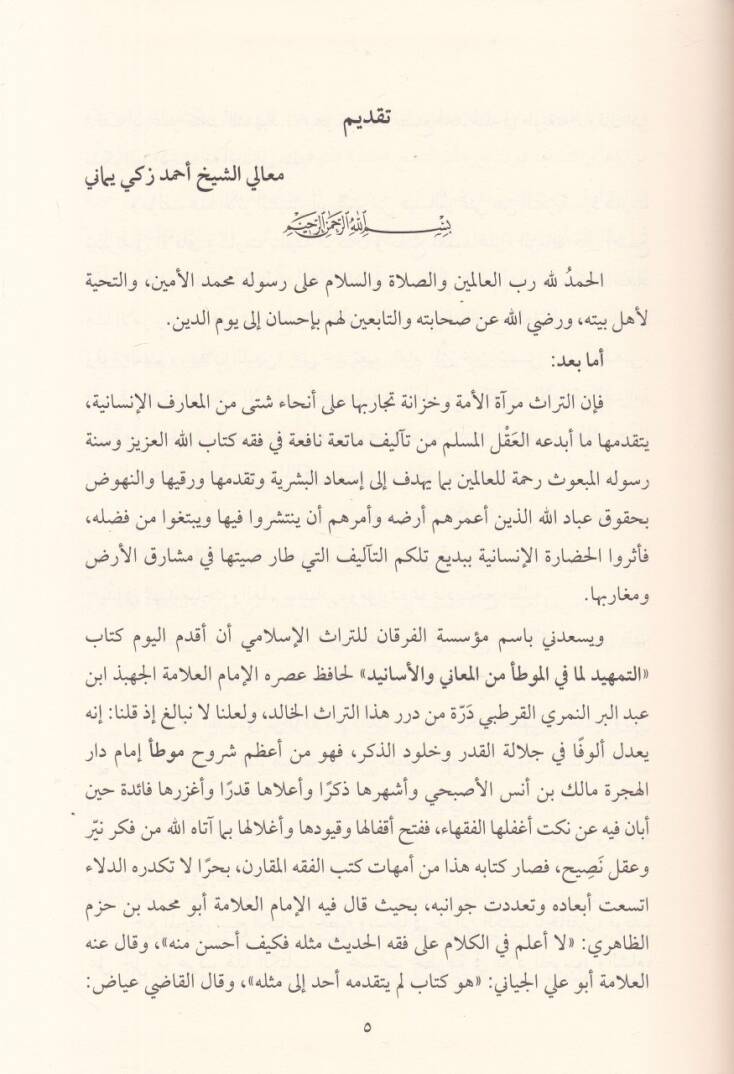 تقديم
معالي الشيخ أحمد زكي يماني
بسم الله الرحمن الرحيم
الحمدُ لله رب العالمين والصلاة والسلام على رسوله محمد الأمين، والتحية
لأهل بيته، ورضي الله عن صحابته والتابعين لهم بإحسان إلى يوم الدين.
أما بعد:
فإن التراث مرآة الأمة وخزانة تجاربها على أنحاء شتى من المعارف الإنسانية،
يتقدمها ما أبدعه العَقْل المسلم من تآليف ماتعة نافعة في فقه كتاب الله العزيز وسنة
رسوله المبعوث رحمة للعالمين بما يهدف إلى إسعاد البشرية وتقدمها ورقيها والنهوض
بحقوق عباد الله الذين أعمرهم أرضه وأمرهم أن ينتشروا فيها ويبتغوا من فضله،
فأثروا الحضارة الإنسانية ببديع تلكم التآليف التي طار صيتها في مشارق الأرض
ومغاربها.
ويسعدني باسم مؤسسة الفرقان للتراث الإسلامي أن أقدم اليوم كتاب
«التمهيد لما في الموطأ من المعاني والأسانيد» لحافظ عصره الإمام العلامة الجهبذ ابن
عبد البر النمري القرطبي دَرّة من درر هذا التراث الخالد، ولعلنا لا نبالغ إذ قلنا: إنه
يعدل ألوفًا في جلالة القدر وخلود الذكر، فهو من أعظم شروح موطأ إمام دار
الهجرة مالك بن أنس الأصبحي وأشهرها ذكرًا وأعلاها قدرًا وأغزرها فائدة حين
أبان فيه عن نكت أغفلها الفقهاء، ففتح أقفالها وقيودها وأغلالها بما آتاه الله من فكر نيّر
وعقل نَصِيح، فصار كتابه هذا من أمهات كتب الفقه المقارن، بحرًا لا تكدره الدلاء
اتسعت أبعاده وتعددت جوانبه، بحيث قال فيه الإمام العلامة أبو محمد بن حزم
الظاهري: «لا أعلم في الكلام على فقه الحديث مثله فكيف أحسن منه»، وقال عنه
العلامة أبو علي الجياني: «هو كتاب لم يتقدمه أحد إلى مثله»، وقال القاضي عياض:
٥